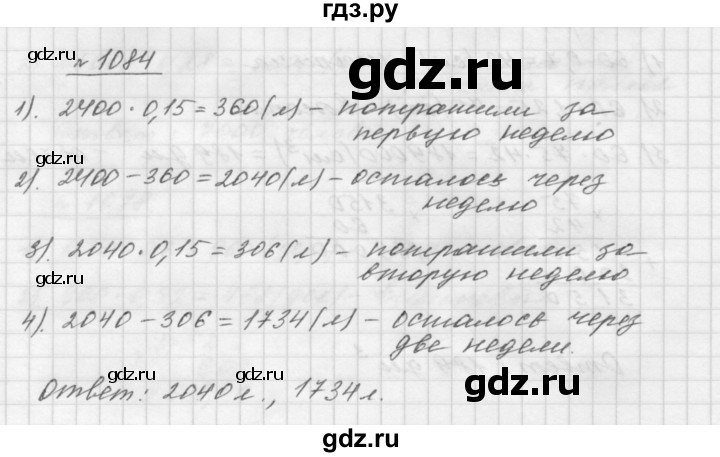 гдз.ру
gdz.ru gdz.ru gdz.ru
№ 1084
gdz.ru
1). 2400 · 0,15 = 360 (л) – потратили за
первую неделю
gdz.ru gdz.ru
2). 2400 – 360 = 2040 (л) – осталось через
неделю
gdz.ru
3). 2040 · 0,15 = 306 (л) – потратили за
вторую неделю
gdz.ru gdz.ru
4). 2040 – 306 = 1734 (л) – осталось через
две недели.
gdz.ru
Ответ: 2040 л., 1734 л.
gdz.ru gdz.ru
gdz.ru